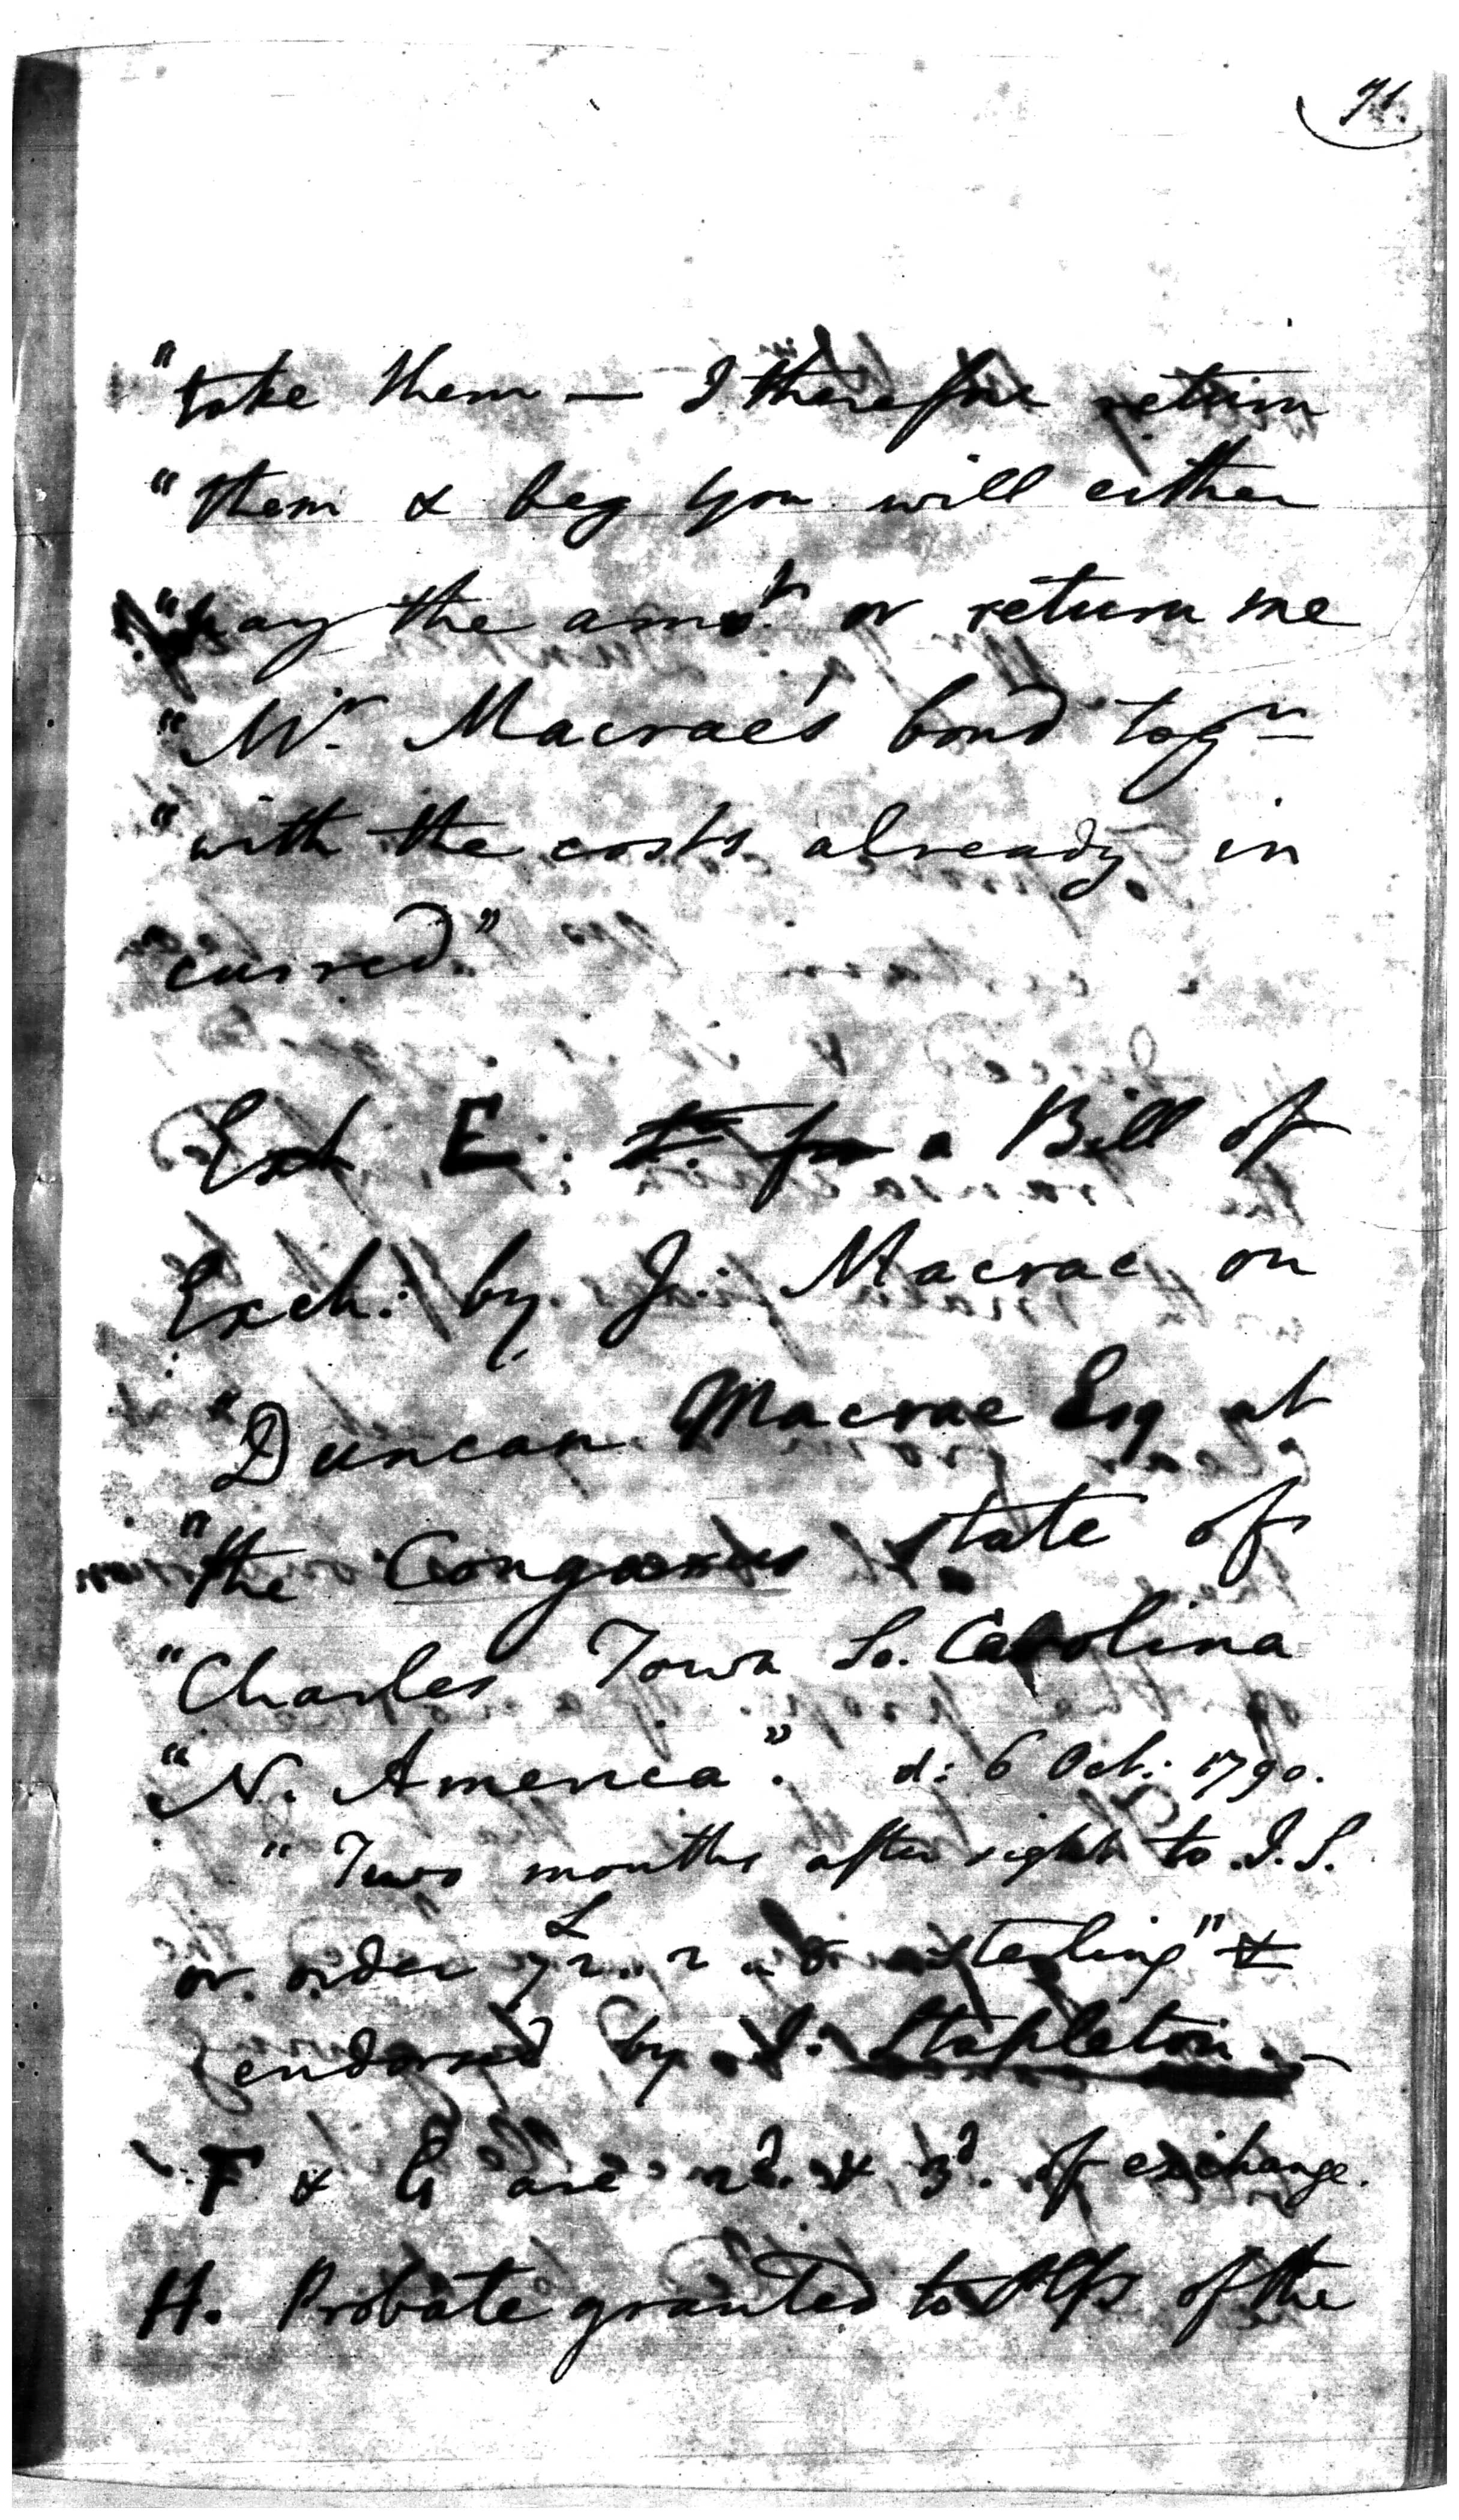 71.
"take them — I therefore return
"them & beg you will either
"pay the amot. or return me
"Mr. Macrae's bond togr
"with the costs already in
curred."
Exh E: a Bill of
Exch: by J: Macrae on
"Duncan Macrae Esq at
"the Congarees state of
"Charles Town So. Carolina
"N. America". d: 6 Oct: 1790.
"Two months after sight to J. S.
or order sterling" &
endorsed by J. Stapleton. —
F & G are 2d. & 3d. of exchange.
H. Probate granted to Plfs of the